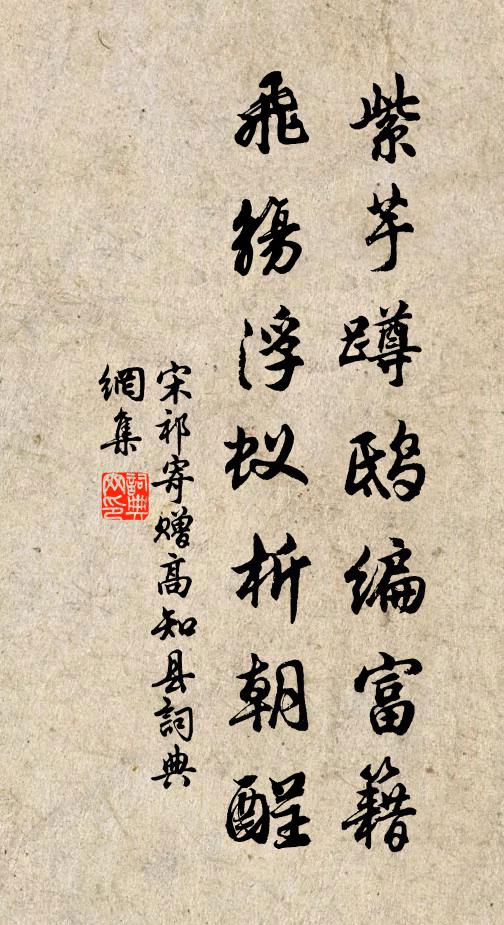 紫芋蹲鸱编富籍
飛觞浮蚁析朝酲
宋祁寄赠高知县詞典
網集
詞典網印